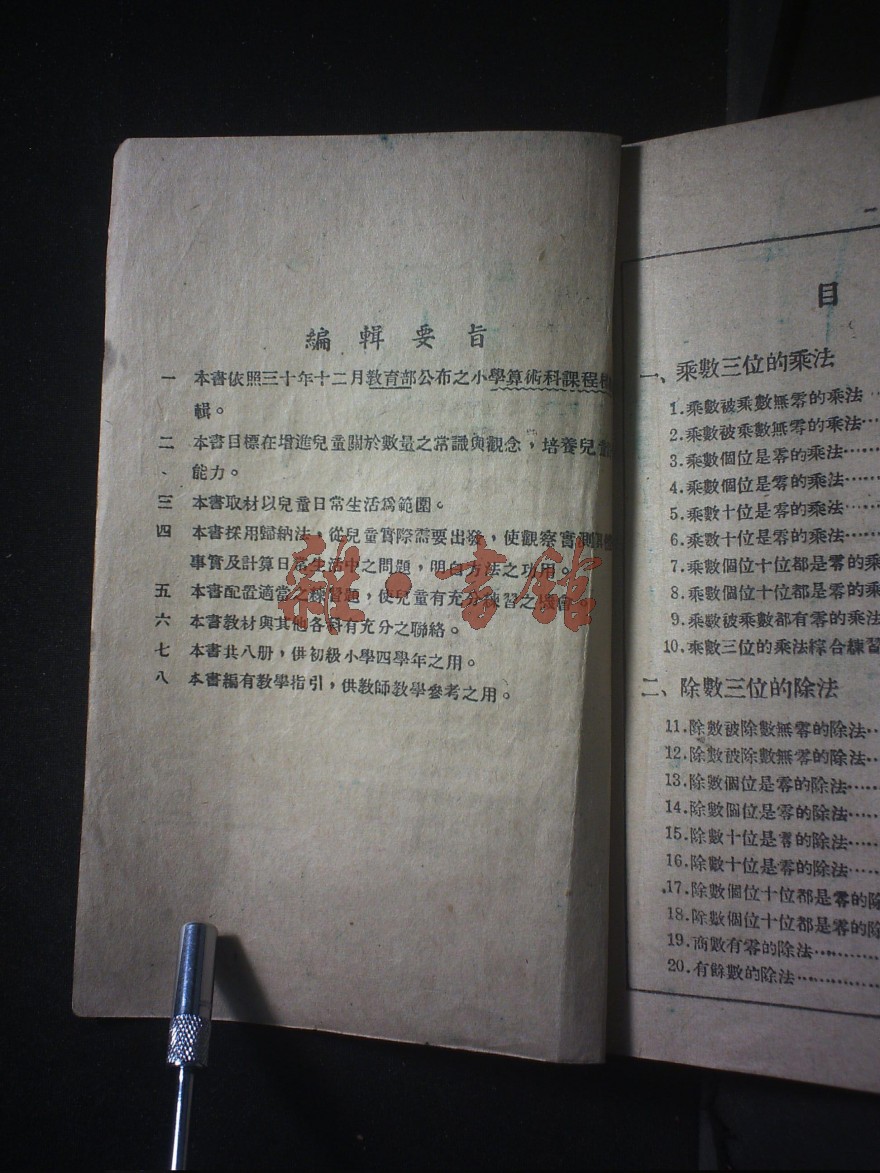 編輯要旨
一 本書依照三十年十二月教育部公布之小學算術科課程標
輯。
二 本書目標在增進兒童關於數量之常識與觀念,培養兒童
、 能力。
三 本書取材以兒童日常生活爲範圍。
四 本書採用歸納法,從兒童實際需要出發,使觀察實測
事實及計算日常生活中之問題,明白方法之功用。
五 本書配置適當之練習題,使兒童有充分練習之機會。
六 本書教材與其他各科有充分之聯絡。
七 本書共八册,供初級小學四學年之用。
八 本書編有教學指引,供教師教學參考之用。
雜·書館
一
目
一、乘數三位的乘法
1.乘數被乘數無零的乘法……
2.乘數被乘數無零的乘法……
3.乘數個位是零的乘法……
4.乘數個位是零的乘法……
5.乘數十位是零的乘法……
6.乘數十位是零的乘法……
7.乘數個位十位都是零的乘
8.乘數個位十位都是零的乘
9.乘數被乘數都有零的乘法
10.乘數三位的乘法綜合練習
二、除數三位的除法
11.除數被除數無零的除法……
12.除數被除數無零的除法……
13.除數個位是零的除法……
14.除數個位是零的除法……
15.除數十位是零的除法……
16.除數十位是零的除法……
17.除數個位十位都是零的除
18.除數個位十位都是零的除
19.商數有零的除法……
20.有餘數的除法……